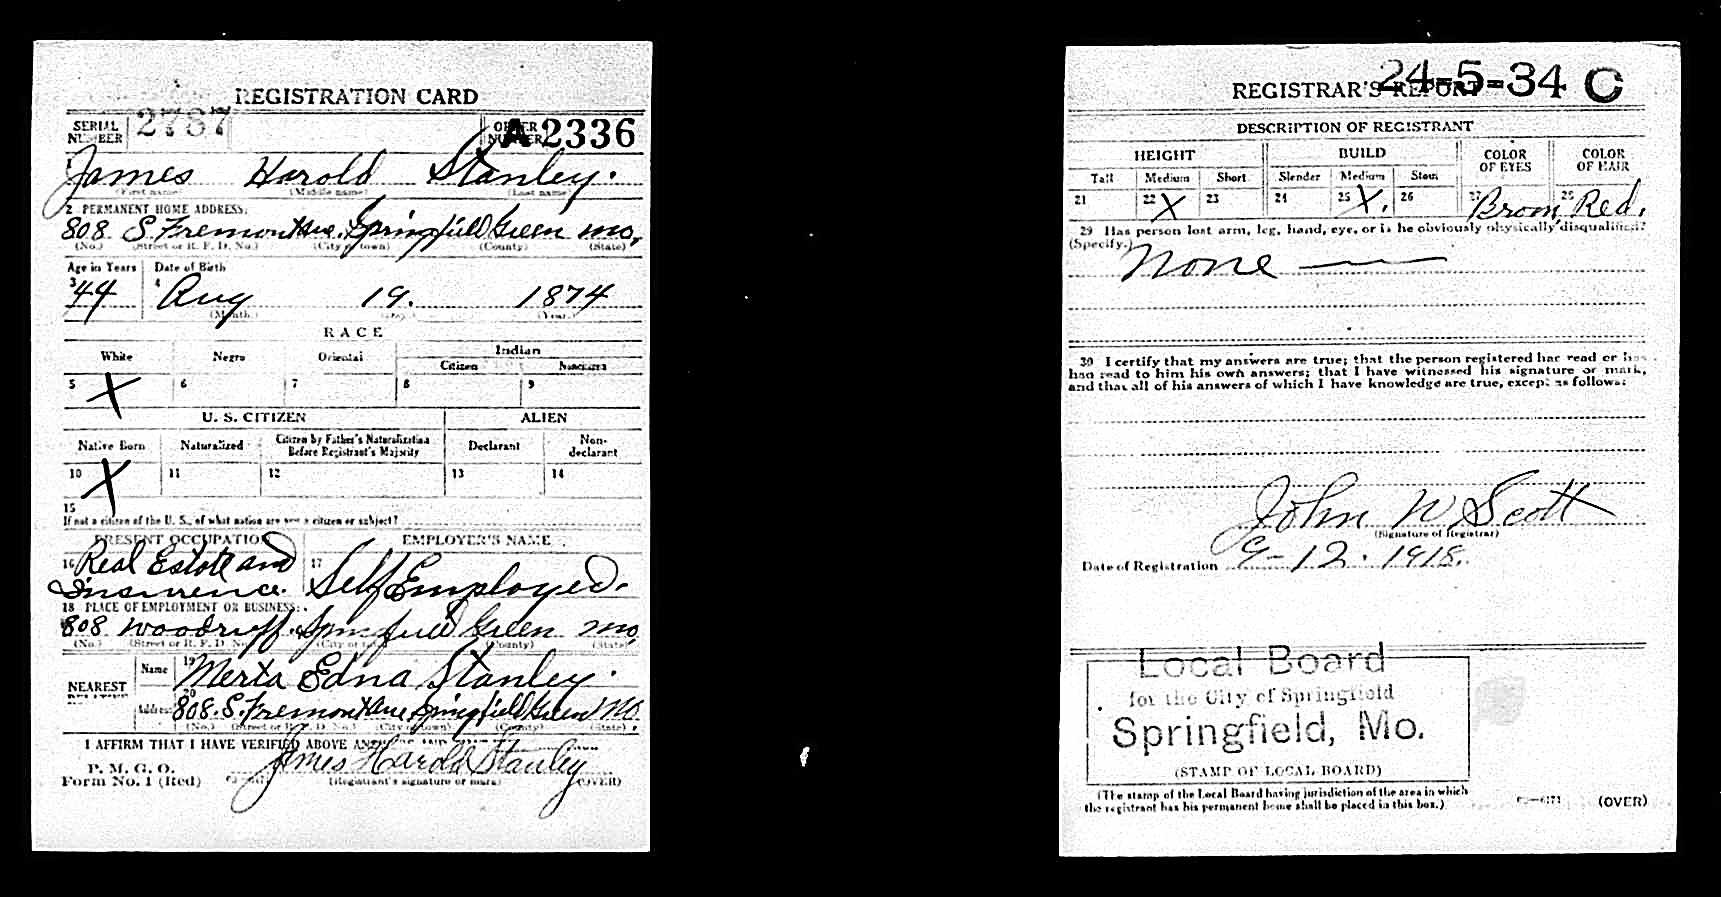 REGISTRATION CARD
SERIAL NUMBER 2787 ORDER NUMBER A2336
1 James Harold Stanley.
(First name) (Middle name) (Last name)
2 PERMANENT HOME ADDRESS:
808 S Fremont Ave. Springfield Green Mo.
(No.) (Street or R. F. D. No.) (City or town) (County) (State)
Age in Years Date of Birth
3 44 4 Aug 19. 1874
(Month.) (Day.) (Year.)
RACE
White Negro Oriental Indian
Citizen Noncitizen
5 X 6 7 8 9
U. S. CITIZEN ALIEN
Native Born Naturalized Citizen by Father's Naturalization Before Registrant's Majority Declarant Non-declarant
10 X 11 12 13 14
15
If not a citizen of the U. S., of what nation are you a citizen or subject?
PRESENT OCCUPATION EMPLOYER'S NAME
16 Real Estate and 17
Insurence. Self Employed.
18 PLACE OF EMPLOYMENT OR BUSINESS:
808 Woodruff. Springfield Green Mo
(No.) (Street or R. F. D. No.) (City or town) (County) (State)
NEAREST RELATIVE Name 19 Merta Edna Stanley.
Address 20 808. S. Fremont Ave Springfield Green Mo.
(No.) (Street or R. F. D. No.) (City or town) (County) (State)
I AFFIRM THAT I HAVE VERIFIED ABOVE
P. M. G. O.
Form No. 1 (Red) James Harold Stanley
(Registrant's signature or mark) (OVER)
REGISTRAR'S REPORT 24-5-34 C
DESCRIPTION OF REGISTRANT
HEIGHT BUILD COLOR OF EYES COLOR OF HAIR
Tall Medium Short Slender Medium Stout
21 22 X 23 24 25 X. 26 27 Brown 28 Red.
29 Has person lost arm, leg, hand, eye, or is he obviously physically disqualified?
(Specify.)
None
30 I certify that my answers are true; that the person registered has read or has
had read to him his own answers; that I have witnessed his signature or mark,
and that all of his answers of which I have knowledge are true, except as follows:
John W Scott
(Signature of Registrar)
Date of Registration 9-12-1918.
Local Board
for the City of Springfield
Springfield, Mo.
(STAMP OF LOCAL BOARD)
(The stamp of the Local Board having jurisdiction of the area in which
the registrant has his permanent home shall be placed in this box.)
(OVER)